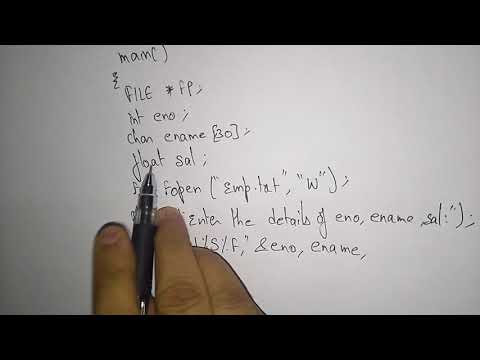 main()
{
FILE * fp;
int eno;
char ename [30];
float sal;
fopen ("Emp.txt", "W");
Enter the details of eno, ename, sal:");
%S%f," &eno, ename,